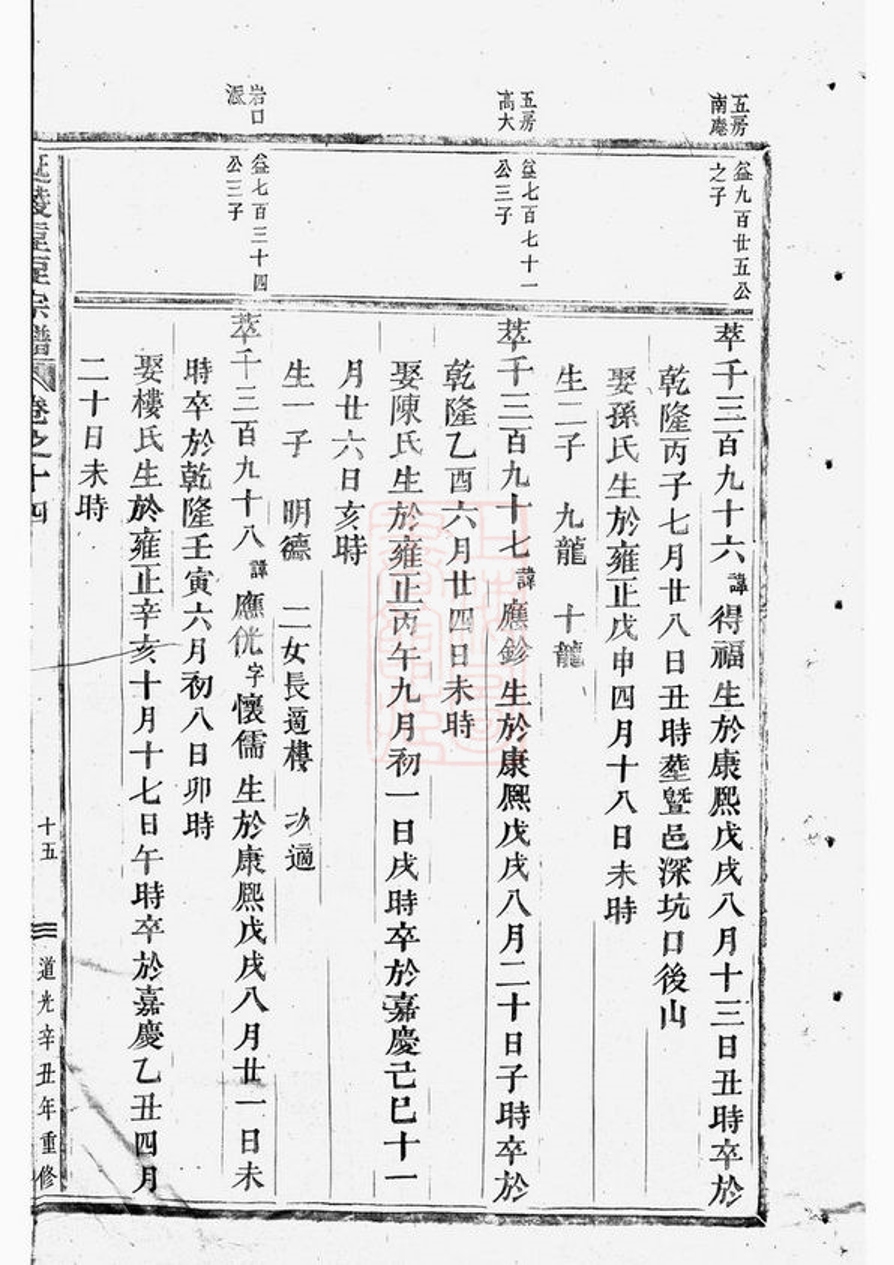 五房
南庵
益九百廿五公
之子
萃千三百九十六諱得福生於康熙戊戌八月十三日丑時卒於
乾隆丙子七月廿八日丑時塟暨邑深坑口後山
娶孫氏生於雍正戊申四月十八日未時
生二子 九龍 十龍
五房
高大
益七百七十一
公三子
萃千三百九十七諱應鉁生於康熙戊戌八月二十日子時卒於
乾隆乙酉六月廿四日未時
娶陳氏生於雍正丙午九月初一日戌時卒於嘉慶己巳十一
月廿六日亥時
生一子 明德 二女長適樓 次適
岩口
派
益七百三十四
公三子
萃千三百九十八諱應侊字懷儒生於康熙戊戌八月廿一日未
時卒於乾隆壬寅六月初八日卯時
娶樓氏生於雍正辛亥十月十七日午時卒於嘉慶乙丑四月
二十日未時
宗譜 卷之十四 十五 道光辛丑年重修